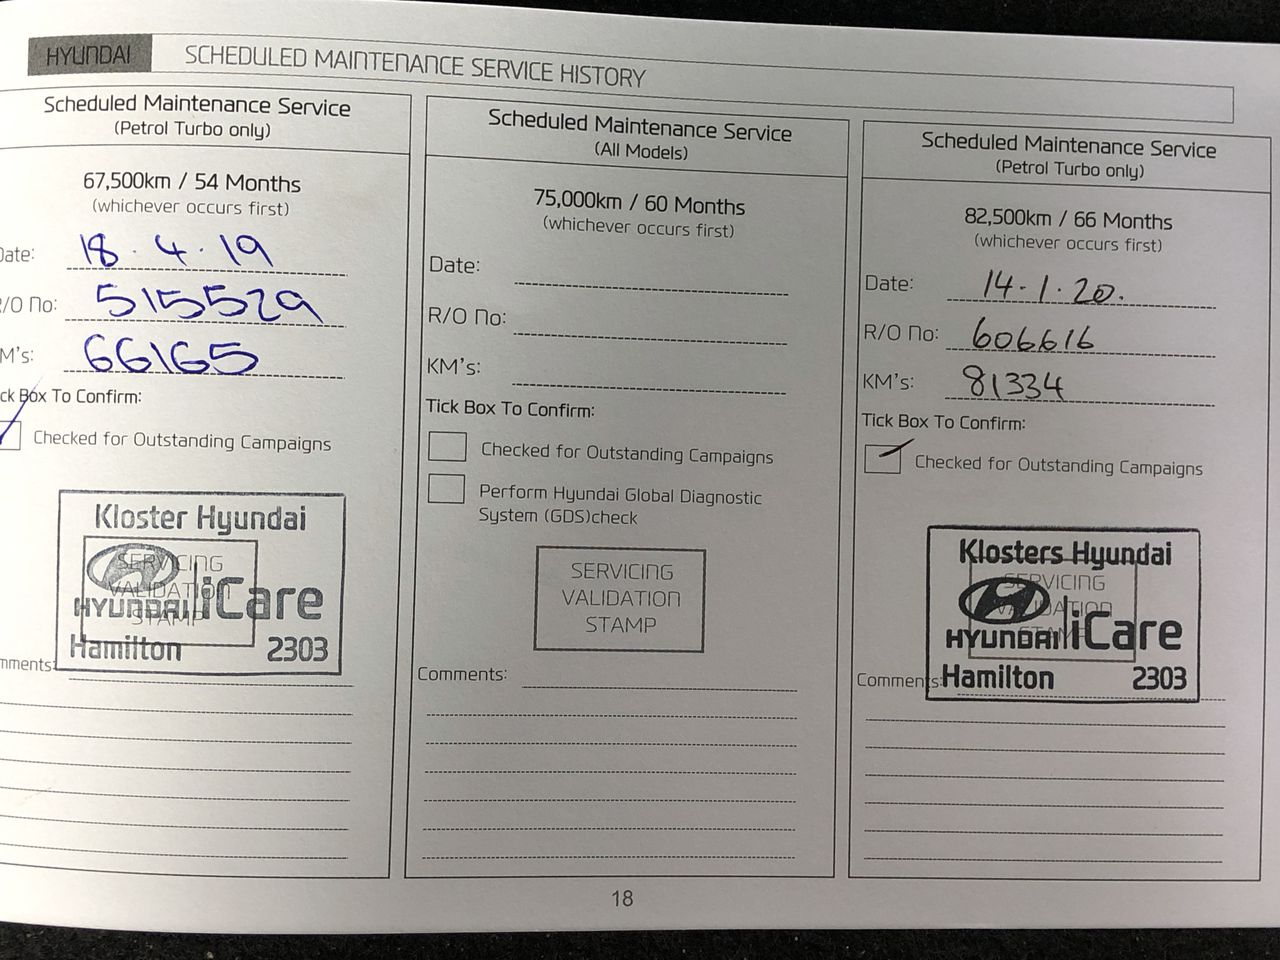 HYUNDAI
SCHEDULED MAINTENANCE SERVICE HISTORY
Scheduled Maintenance Service
(Petrol Turbo only)
67,500km / 54 Months
(whichever occurs first)
Date: 18.4.19
R/O No: 515529
M's: 66165
ck Box To Confirm:
Checked for Outstanding Campaigns
Kloster Hyundai
SERVICING
VALIDATION
STAMP
HYUNDAI iCare
Hamilton 2303
mments:
Scheduled Maintenance Service
(All Models)
75,000km / 60 Months
(whichever occurs first)
Date:
R/O No:
KM's:
Tick Box To Confirm:
Checked for Outstanding Campaigns
Perform Hyundai Global Diagnostic
System (GDS)check
SERVICING
VALIDATION
STAMP
Comments:
Scheduled Maintenance Service
(Petrol Turbo only)
82,500km / 66 Months
(whichever occurs first)
Date: 14.1.20.
R/O No: 606616
KM's: 81334
Tick Box To Confirm:
Checked for Outstanding Campaigns
Klosters Hyundai
SERVICING
VALIDATION
STAMP
HYUNDAI iCare
Hamilton 2303
Comments:
18